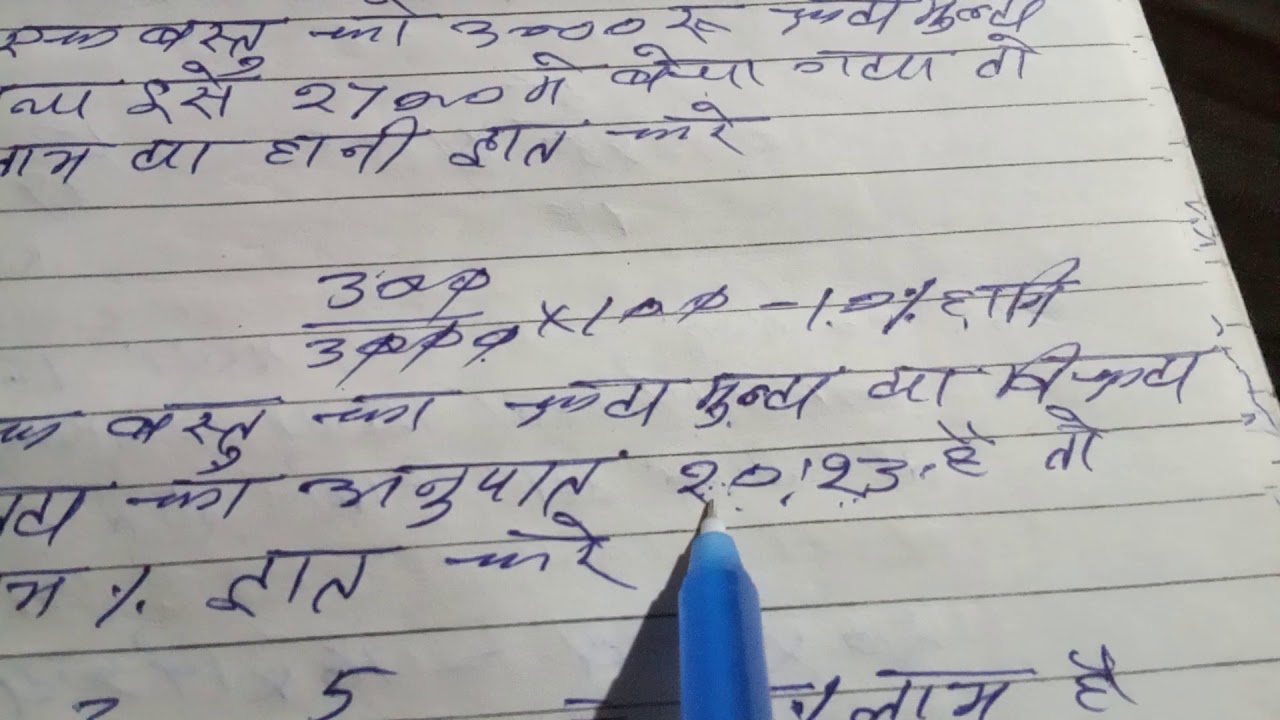 एक वस्तु को 3000 रू क्रय मुल्य
इसे 2700 मे बेचा गया तो
लाभ या हानी ज्ञात करे
300
3000 × 100 - 10% हानि
एक वस्तु का क्रय मुल्य या विक्रय
का अनुपात 20:23 है तो
% ज्ञात करे
5
% लाभ है